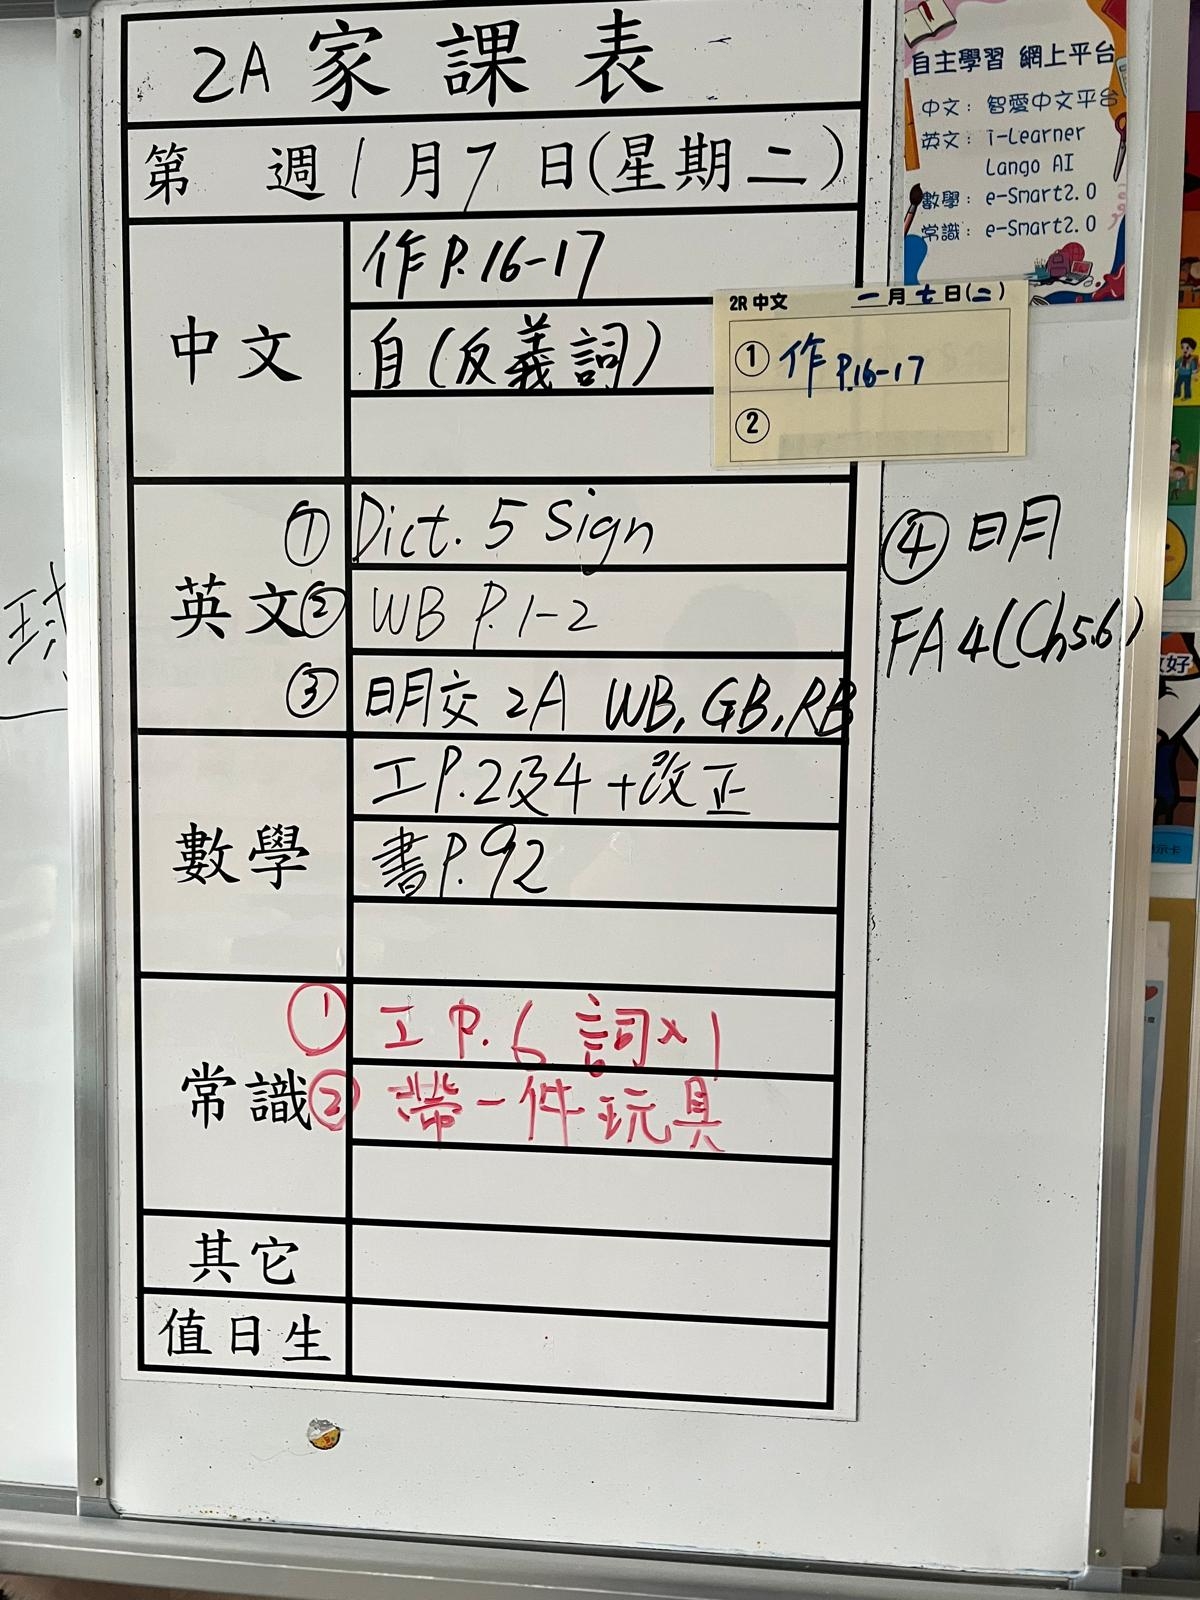 2A 家課表
第 週 1月7日(星期二)
中文
作P.16-17
自(反義詞)
英文
① Dict. 5 Sign
② WB P.1-2
③ 明交 2A WB, GB, RB
④ 明
FA 4(Ch5.6)
數學
工P.2及4+改正
書P.92
常識
① 工P.6 詞×1
② 帶一件玩具
其它
值日生
自主學習 網上平台
中文：智愛中文平台
英文：i-Learner
Lango AI
數學：e-Smart2.0
常識：e-Smart2.0
2R 中文 一月七日(二)
① 作P.16-17
②
球
好
示卡